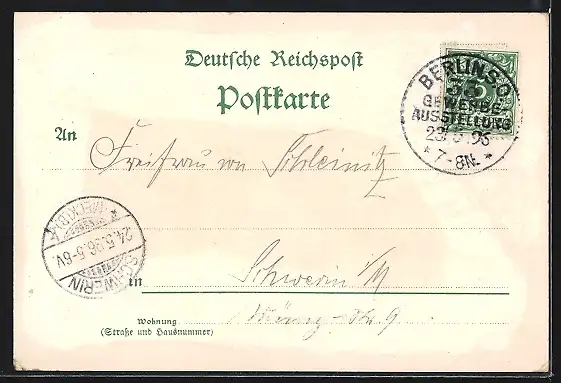 Deutsche Reichspost
Postkarte
BERLIN S.O.
33
GEWERBE-
AUSSTELLUNG
23/5.96
* 7-8N. *
5
An
Freifrau von Schleinitz
* (MECKLB.) *
24.5.96.5-6V.
SCHWERIN
in Schwerin i/M
Wohnung 9
(Straße und Hausnummer)